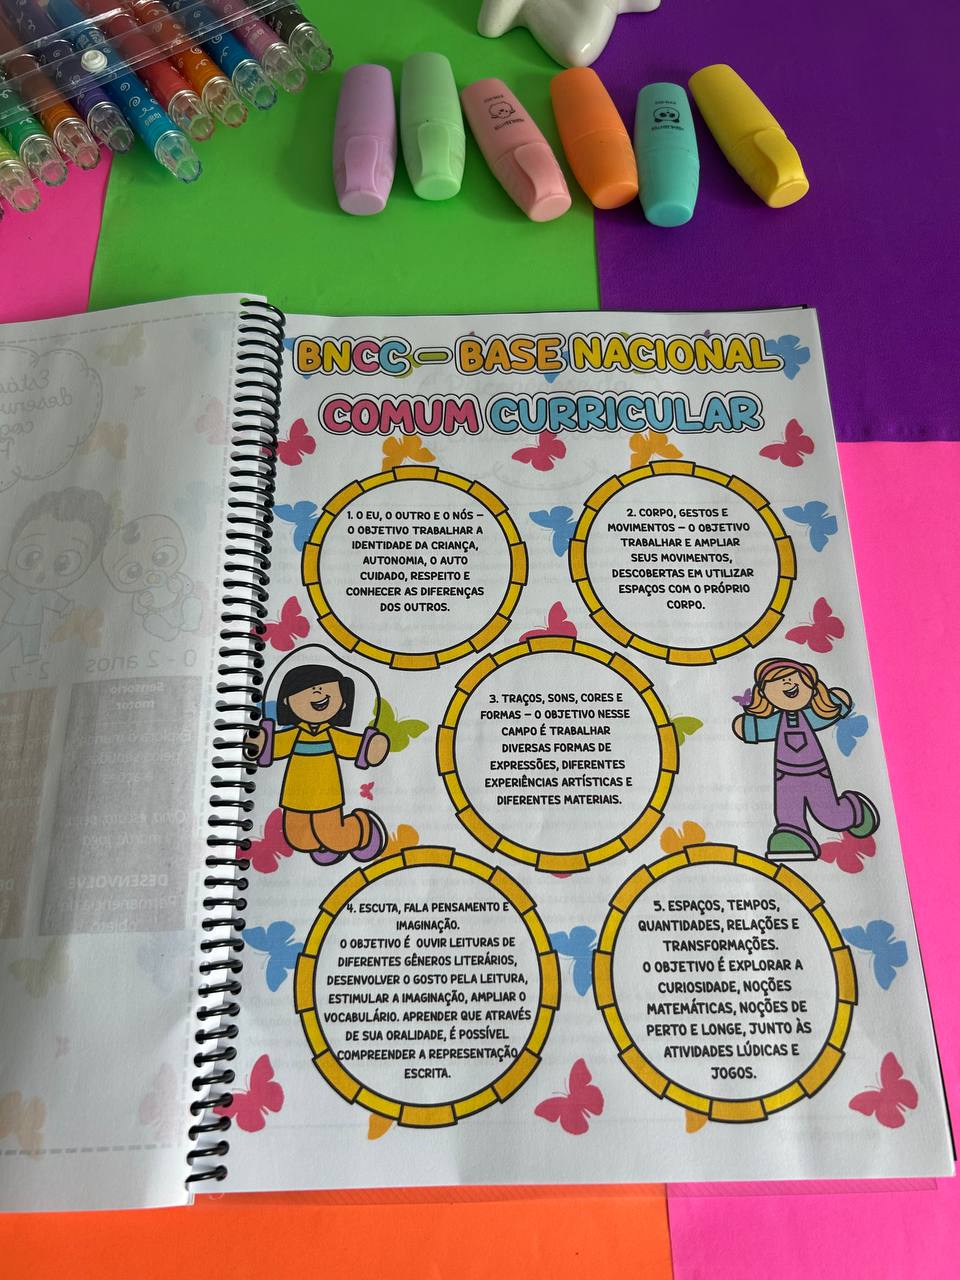 BNCC – BASE NACIONAL
COMUM CURRICULAR
1. O EU, O OUTRO E O NÓS –
O OBJETIVO TRABALHAR A
IDENTIDADE DA CRIANÇA,
AUTONOMIA, O AUTO
CUIDADO, RESPEITO E
CONHECER AS DIFERENÇAS
DOS OUTROS.
2. CORPO, GESTOS E
MOVIMENTOS – O OBJETIVO
TRABALHAR E AMPLIAR
SEUS MOVIMENTOS,
DESCOBERTAS EM UTILIZAR
ESPAÇOS COM O PRÓPRIO
CORPO.
3. TRAÇOS, SONS, CORES E
FORMAS – O OBJETIVO NESSE
CAMPO É TRABALHAR
DIVERSAS FORMAS DE
EXPRESSÕES, DIFERENTES
EXPERIÊNCIAS ARTÍSTICAS E
DIFERENTES MATERIAIS.
4. ESCUTA, FALA PENSAMENTO E
IMAGINAÇÃO.
O OBJETIVO É OUVIR LEITURAS DE
DIFERENTES GÊNEROS LITERÁRIOS,
DESENVOLVER O GOSTO PELA LEITURA,
ESTIMULAR A IMAGINAÇÃO, AMPLIAR O
VOCABULÁRIO. APRENDER QUE ATRAVÉS
DE SUA ORALIDADE, É POSSÍVEL
COMPREENDER A REPRESENTAÇÃO
ESCRITA.
5. ESPAÇOS, TEMPOS,
QUANTIDADES, RELAÇÕES E
TRANSFORMAÇÕES.
O OBJETIVO É EXPLORAR A
CURIOSIDADE, NOÇÕES
MATEMÁTICAS, NOÇÕES DE
PERTO E LONGE, JUNTO ÀS
ATIVIDADES LÚDICAS E
JOGOS.
0 - 2 anos
Sensório
motor
DESENVOLVE